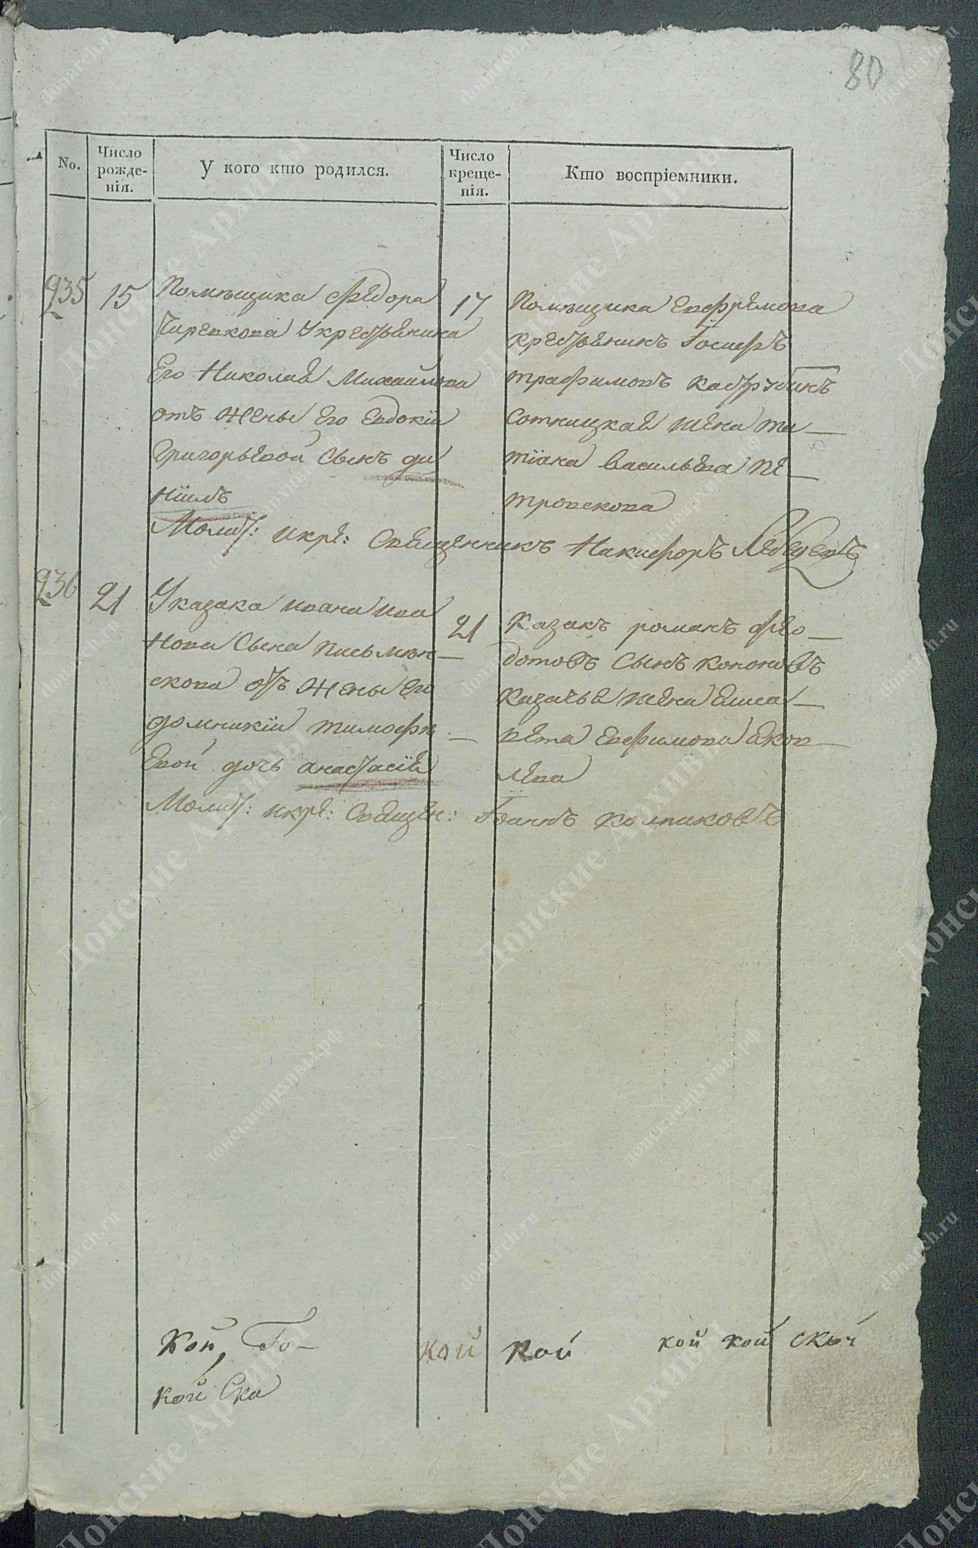 80
No.
Число рожденія.
У кого кто родился.
Число крещенія.
Кто воспріемники.
935
15
Помѣщика Федора
Чирѣкова Укрестьянина
Его Николая Михайлова
отъ жены Его Евдокіи
Григорьевой Сынъ да
ніилъ
17
Помѣщика Ефремова
крестьянинъ Іосифъ
трофимовъ
Сотницкая жена та
тіана васильева Пе
тровскова
Молит: икре: Священникъ Никифоръ Лебедевъ
936
21
Указака ивана ива
нова Сына письмен
скова отъ жены Его
домникіи тимофѣ
Евой дочь анастасія
21
Казакъ романъ фео
дотовъ Сынъ кононовъ
казачья жена Елиса
вета Ефимова яков
лева
Молит: икре: Священ: Іоаннъ колпиковъ
Кой Го
кой кой кой кой скій
кой Ска